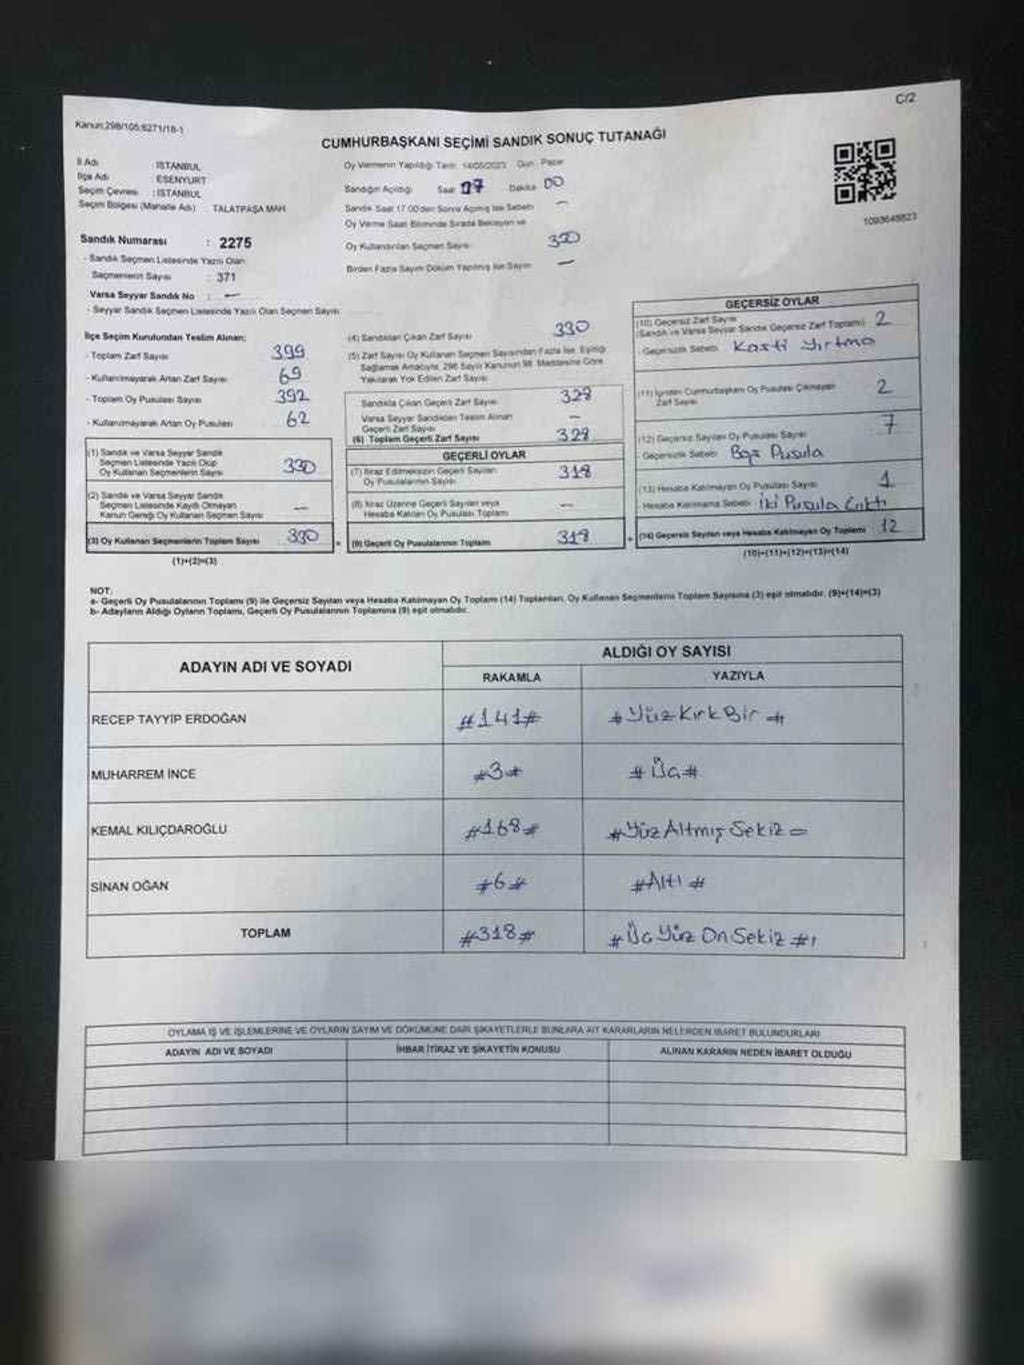 C/2
Kanun;298/105;6271/18-1
CUMHURBAŞKANI SEÇİMİ SANDIK SONUÇ TUTANAĞI
İl Adı : İSTANBUL
İlçe Adı : ESENYURT
Seçim Çevresi : İSTANBUL
Seçim Bölgesi (Mahalle Adı) TALATPAŞA MAH
Sandık Numarası : 2275
- Sandık Seçmen Listesinde Yazılı Olan
Seçmenlerin Sayısı : 371
Varsa Seyyar Sandık No : —
- Seyyar Sandık Seçmen Listesinde Yazılı Olan Seçmen Sayısı
Oy Vermenin Yapıldığı Tarih 14/05/2023 Gün Pazar
Sandığın Açıldığı Saat 17 Dakika 00
Sandık Saat 17.00'den Sonra Açılmış İse Sebebi —
Oy Verme Saati Bitiminde Sırada Bekleyen ve
Oy Kullandırılan Seçmen Sayısı
Birden Fazla Sayım Döküm Yapılmış İse Sayısı —
1093648823
İlçe Seçim Kurulundan Teslim Alınan:
- Toplam Zarf Sayısı 399
- Kullanılmayarak Artan Zarf Sayısı 69
- Toplam Oy Pusulası Sayısı 392
- Kullanılmayarak Artan Oy Pusulası 62
(1) Sandık ve Varsa Seyyar Sandık
Seçmen Listesinde Yazılı Olup
Oy Kullanan Seçmenlerin Sayısı 330
(2) Sandık ve Varsa Seyyar Sandık
Seçmen Listesinde Kayıtlı Olmayan
Kanun Gereği Oy Kullanan Seçmen Sayısı —
(3) Oy Kullanan Seçmenlerin Toplam Sayısı 330
(1)+(2)=(3)
(4) Sandıktan Çıkan Zarf Sayısı 330
(5) Zarf Sayısı Oy Kullanan Seçmen Sayısından Fazla İse, Eşitliği
Sağlamak Amacıyla, 298 Sayılı Kanunun 98. Maddesine Göre
Yakılarak Yok Edilen Zarf Sayısı
Sandıkta Çıkan Geçerli Zarf Sayısı 328
Varsa Seyyar Sandıktan Teslim Alınan
Geçerli Zarf Sayısı —
(6) Toplam Geçerli Zarf Sayısı 328
GEÇERLİ OYLAR
(7) İtiraz Edilmeksizin Geçerli Sayılan
Oy Pusulalarının Sayısı 318
(8) İtiraz Üzerine Geçerli Sayılan veya
Hesaba Katılan Oy Pusulası Toplamı —
(9) Geçerli Oy Pusulalarının Toplamı 318
GEÇERSİZ OYLAR
(10) Geçersiz Zarf Sayısı
(Sandık ve Varsa Seyyar Sandık Geçersiz Zarf Toplamı) 2
Geçersizlik Sebebi Kasti Yırtma
(11) İçinden Cumhurbaşkanı Oy Pusulası Çıkmayan
Zarf Sayısı 2
(12) Geçersiz Sayılan Oy Pusulası Sayısı 7
Geçersizlik Sebebi Boş Pusula
(13) Hesaba Katılmayan Oy Pusulası Sayısı 1
Hesaba Katılmama Sebebi İki Pusula Çıktı
(14) Geçersiz Sayılan veya Hesaba Katılmayan Oy Toplamı 12
(10)+(11)+(12)+(13)=(14)
NOT:
a- Geçerli Oy Pusulalarının Toplamı (9) ile Geçersiz Sayılan veya Hesaba Katılmayan Oy Toplamı (14) Toplamları, Oy Kullanan Seçmenlerin Toplam Sayısına (3) eşit olmalıdır. (9)+(14)=(3)
b- Adayların Aldığı Oyların Toplamı, Geçerli Oy Pusulalarının Toplamına (9) eşit olmalıdır.
ADAYIN ADI VE SOYADI ALDIĞI OY SAYISI
RAKAMLA YAZIYLA
RECEP TAYYİP ERDOĞAN #141# #Yüz Kırk Bir#
MUHARREM İNCE #3# #Üç#
KEMAL KILIÇDAROĞLU #168# #Yüz Altmış Sekiz=
SİNAN OĞAN #6# #Altı#
TOPLAM #318# #Üç Yüz On Sekiz#
OYLAMA İŞ VE İŞLEMLERİNE VE OYLARIN SAYIM VE DÖKÜMÜNE DAİR ŞİKAYETLERLE BUNLARA AİT KARARLARIN NELERDEN İBARET BULUNDUKLARI
ADAYIN ADI VE SOYADI İHBAR İTİRAZ VE ŞİKAYETİN KONUSU ALINAN KARARIN NEDEN İBARET OLDUĞU